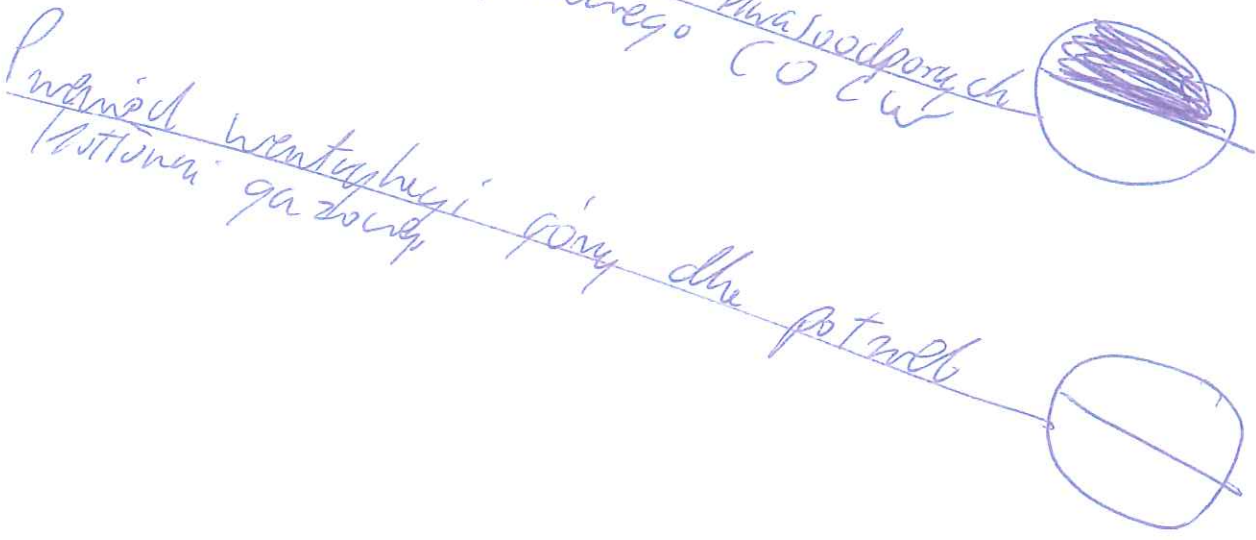 kwasoodpornych
CO CW
Przewód wentylacji górny dla potrzeb
kotłowni gazowej